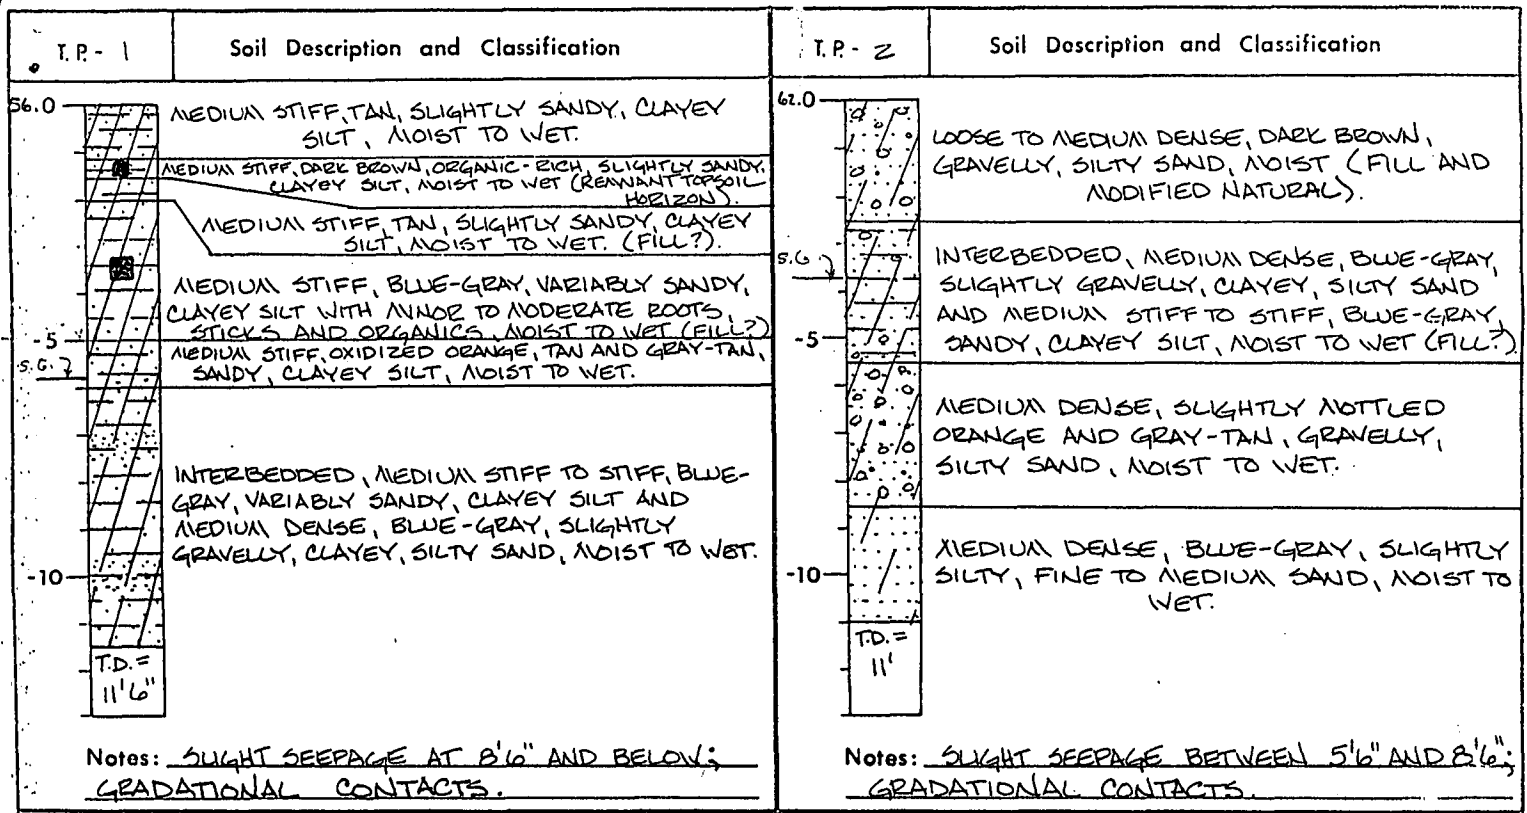 T.P. - 1
Soil Description and Classification
56.0
MEDIUM STIFF, TAN, SLIGHTLY SANDY, CLAYEY
SILT, MOIST TO WET.
MEDIUM STIFF, DARK BROWN, ORGANIC-RICH, SLIGHTLY SANDY,
CLAYEY SILT, MOIST TO WET (REMNANT TOPSOIL
HORIZON).
MEDIUM STIFF, TAN, SLIGHTLY SANDY, CLAYEY
SILT, MOIST TO WET. (FILL?).
MEDIUM STIFF, BLUE-GRAY, VARIABLY SANDY,
CLAYEY SILT WITH MINOR TO MODERATE ROOTS,
STICKS AND ORGANICS, MOIST TO WET (FILL?)
-5
MEDIUM STIFF, OXIDIZED ORANGE, TAN AND GRAY-TAN,
S.G.
SANDY, CLAYEY SILT, MOIST TO WET.
INTERBEDDED, MEDIUM STIFF TO STIFF, BLUE-
GRAY, VARIABLY SANDY, CLAYEY SILT AND
MEDIUM DENSE, BLUE-GRAY, SLIGHTLY
GRAVELLY, CLAYEY, SILTY SAND, MOIST TO WET.
-10
T.D. =
11'6"
Notes: SLIGHT SEEPAGE AT 8'6" AND BELOW;
GRADATIONAL CONTACTS.
T.P. - 2
Soil Description and Classification
62.0
LOOSE TO MEDIUM DENSE, DARK BROWN,
GRAVELLY, SILTY SAND, MOIST (FILL AND
MODIFIED NATURAL).
S.G.
INTERBEDDED, MEDIUM DENSE, BLUE-GRAY,
SLIGHTLY GRAVELLY, CLAYEY, SILTY SAND
AND MEDIUM STIFF TO STIFF, BLUE-GRAY,
-5
SANDY, CLAYEY SILT, MOIST TO WET (FILL?)
MEDIUM DENSE, SLIGHTLY MOTTLED
ORANGE AND GRAY-TAN, GRAVELLY,
SILTY SAND, MOIST TO WET.
MEDIUM DENSE, BLUE-GRAY, SLIGHTLY
-10
SILTY, FINE TO MEDIUM SAND, MOIST TO
WET.
T.D. =
11'
Notes: SLIGHT SEEPAGE BETWEEN 5'6" AND 8'6";
GRADATIONAL CONTACTS.